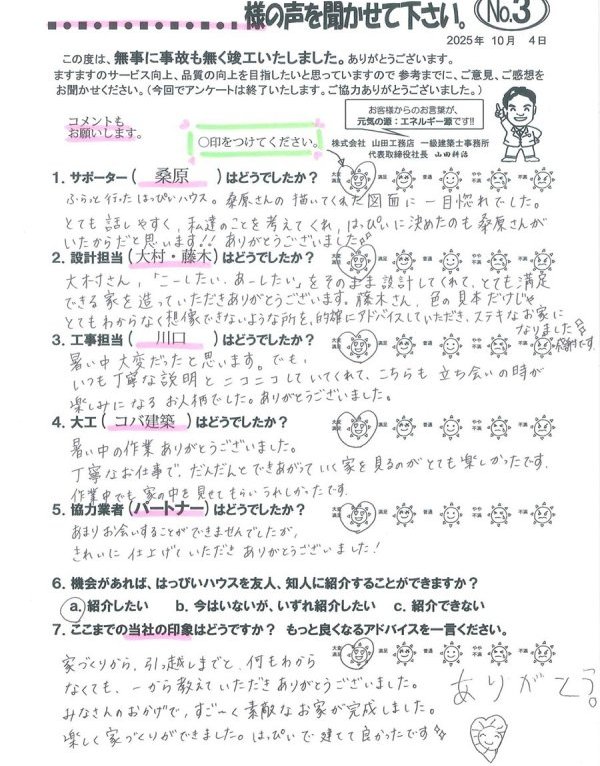 様の声を聞かせて下さい。 No.3
2025年 10月 4日
この度は、無事に事故も無く竣工いたしました。ありがとうございます。
ますますのサービス向上、品質の向上を目指したいと思っていますので 参考までに、ご意見、ご感想を
お聞かせください。（今回でアンケートは終了いたします。ご協力ありがとうございました。）
お客様からのお言葉が、
元気の源：エネルギー源です!!
コメントも
お願いします。
〇印をつけてください。
株式会社 山田工務店 一級建築士事務所
代表取締役社長 山田耕治
1. サポーター（ 桑原 ）はどうでしたか？ 大変満足 満足 普通 やや不満 不満
ふらっと行ったはっぴぃハウス。桑原さんの描いてくれた図面に一目惚れでした。
とても話しやすく、私達のことを考えてくれ、はっぴぃに決めたのも桑原さんが
いたからだと思います!! ありがとうございました
2. 設計担当（大村・藤木）はどうでしたか？ 大変満足 満足 普通 やや不満 不満
大村さん、「こーしたい、あーしたい」をそのまま設計してくれて、とても満足
できる家を造っていただきありがとうございます。藤木さん、色の見本だけじゃ
とてもわからなく想像できないような所を、的確にアドバイスしていただき、ステキなお家に
なりました
3. 工事担当（ 川口 ）はどうでしたか？ 大変満足 満足 普通 やや不満 不満
暑い中大変だったと思います。でも、
いつも丁寧な説明とニコニコしていてくれて、こちらも立ち会いの時が
楽しみになるお人柄でした。ありがとうございました。
4. 大工（ コバ建築 ）はどうでしたか？ 大変満足 満足 普通 やや不満 不満
暑い中の作業ありがとうございました。
丁寧なお仕事で、だんだんとできあがっていく家を見るのがとても楽しかったです。
作業中でも家の中を見せてもらいうれしかったです。
5. 協力業者（パートナー）はどうでしたか？ 大変満足 満足 普通 やや不満 不満
あまりお会いすることができませんでしたが、
きれいに仕上げていただきありがとうございました！
6. 機会があれば、はっぴいハウスを友人、知人に紹介することができますか？
a. 紹介したい b. 今はいないが、いずれ紹介したい c. 紹介できない
7. ここまでの当社の印象はどうですか？ もっと良くなるアドバイスを一言ください。
大変満足 満足 普通 やや不満 不満
家づくりから、引っ越しまでと、何もわから
なくても、一から教えていただきありがとうございました。
みなさんのおかげで、すご～く素敵なお家が完成しました。
楽しく家づくりができました。はっぴぃで建てて良かったです
ありがとう。